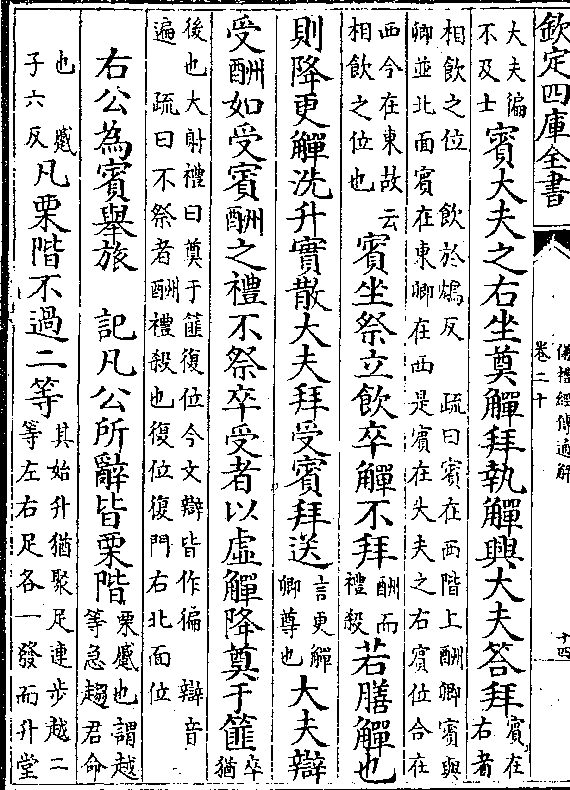 欽定四庫全書
儀禮經傳通解
卷二十
十四
大夫徧
不及士
賓大夫之右坐奠觶拜執觶興大夫答拜
賓在
右者
相飲之位　飲於鴆反　疏曰賓在西階上酬卿賓與
卿並北面賓在東卿在西是賓在大夫之右賓位合在
西今在東故云
相飲之位也
賓坐祭立飲卒觶不拜
酬而
禮殺
若膳觶也
則降更觶洗升實散大夫拜受賓拜送
言更觶
卿尊也
大夫辯
受酬如受賓酬之禮不祭卒受者以虛觶降奠于篚
卒
猶
後也大射禮曰奠于篚復位今文辯皆作徧　辯音
遍　疏曰不祭者酬禮殺也復位復門右北面位
右公為賓舉旅　記凡公所辭皆栗階
栗蹙也謂越
等急趨君命
也　蹙
子六反
凡栗階不過二等
其始升猶聚足連步越二
等左右足各一發而升堂